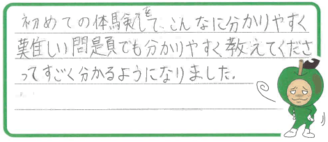 初めての体験して、こんなに分かりやすく
難しい問題でも分かりやすく教えてくださ
ってすごく分かるようになりました。